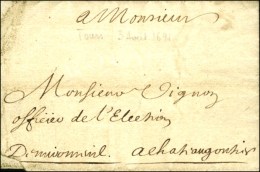 a Monsieur
Tours 3 avril 1691
Monsieur Vignon
officier de l'Election
a chateaugontier